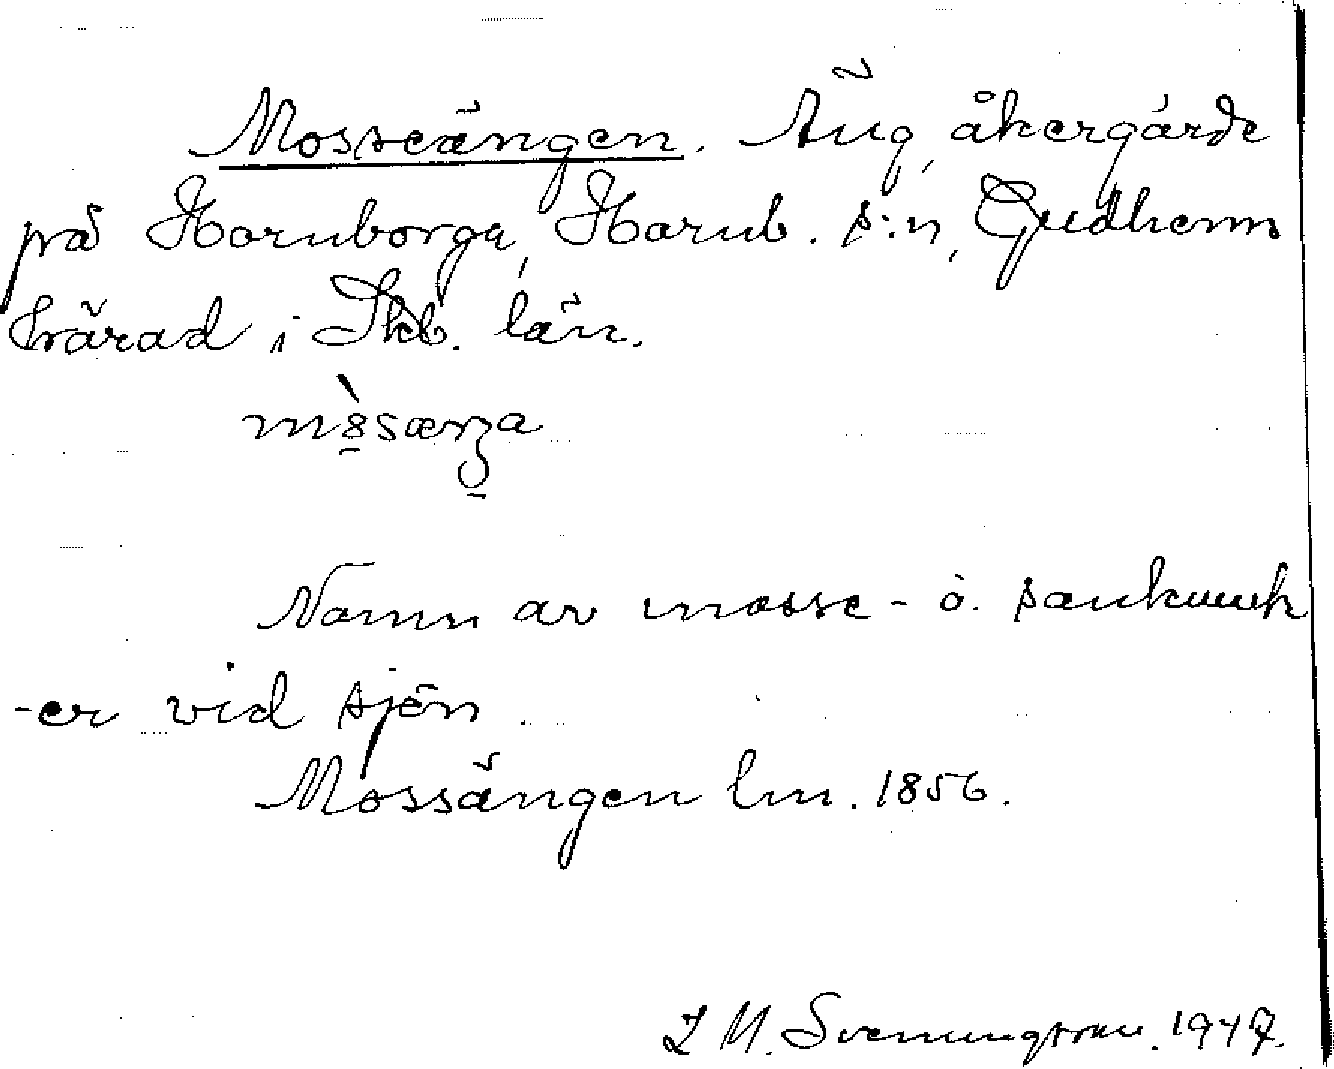 Mosseängen. Äng, åkergärde
på Hornborga, Hornb. s:n, Gudhems
härad i Skb. län.
Namn av mosse- o. sankmark
-er vid sjön.
Mossängen lm. 1856.
Svenungsson. 1947.